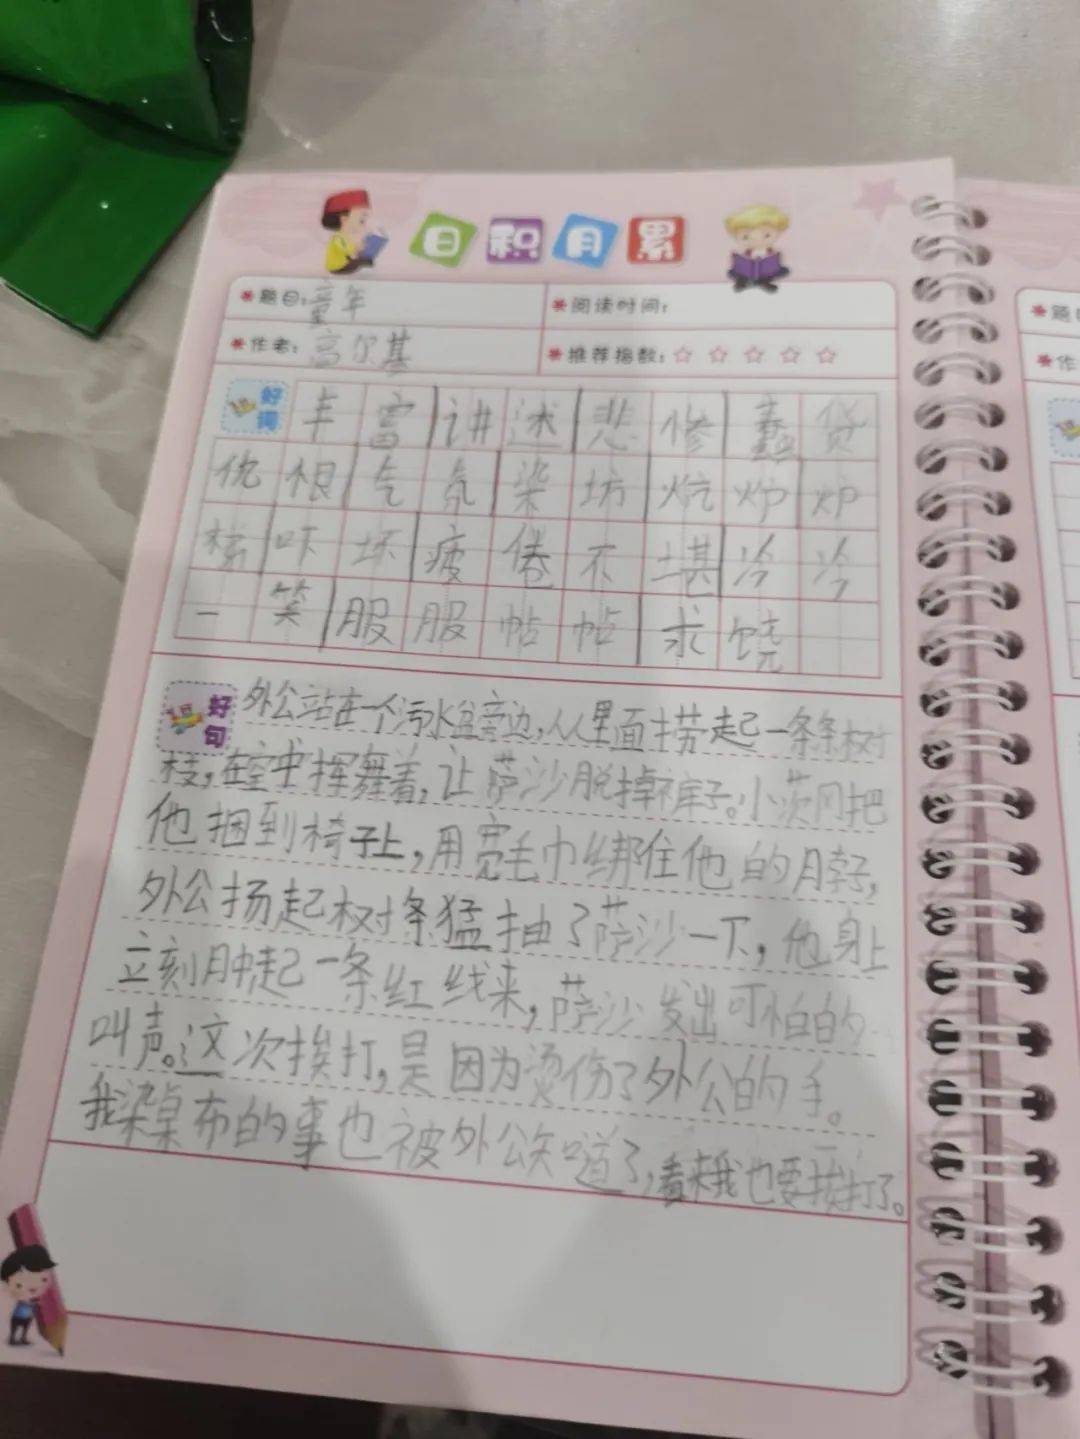 日积月累
题目：童年
阅读时间：
作者：高尔基
推荐指数：☆ ☆ ☆ ☆ ☆
好词
丰富讲述悲惨蠢货
仇恨气氛染坊炕炉炉
梯吓坏疲倦不堪冷冷
一笑服服帖帖求饶
好句
外公站在一个污水盆旁边，从里面捞起一条条树
枝，在空中挥舞着，让萨沙脱掉裤子。小茨冈把
他捆到椅子上，用宽毛巾绑住他的脖子，
外公扬起树条猛抽了萨沙一下，他身上
立刻肿起一条红线来，萨沙发出可怕的
叫声。这次挨打，是因为烫伤了外公的手。
我染桌布的事也被外公知道了，看来我也要挨打了。
题
作